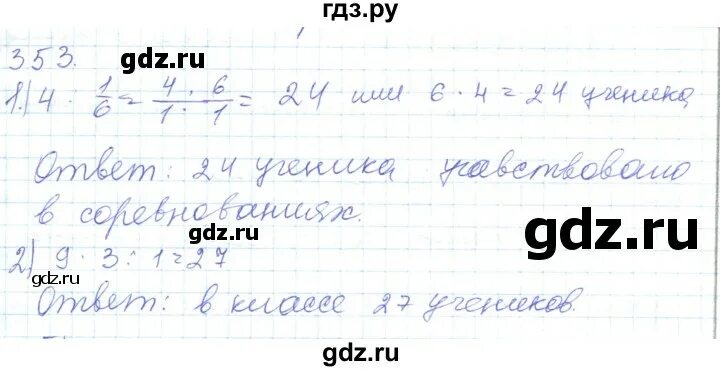 гдз.ру
353.
gdz.ru
1.) 4 · 1/6 = 4 · 6 / 1 · 1 = 24 или 6 · 4 = 24 ученика
Ответ: 24 ученика учавствовало
gdz.ru
в соревнованиях.
gdz.ru
2) 9 · 3 : 1 = 27
gdz.ru
Ответ: в классе 27 учеников.
gdz.ru